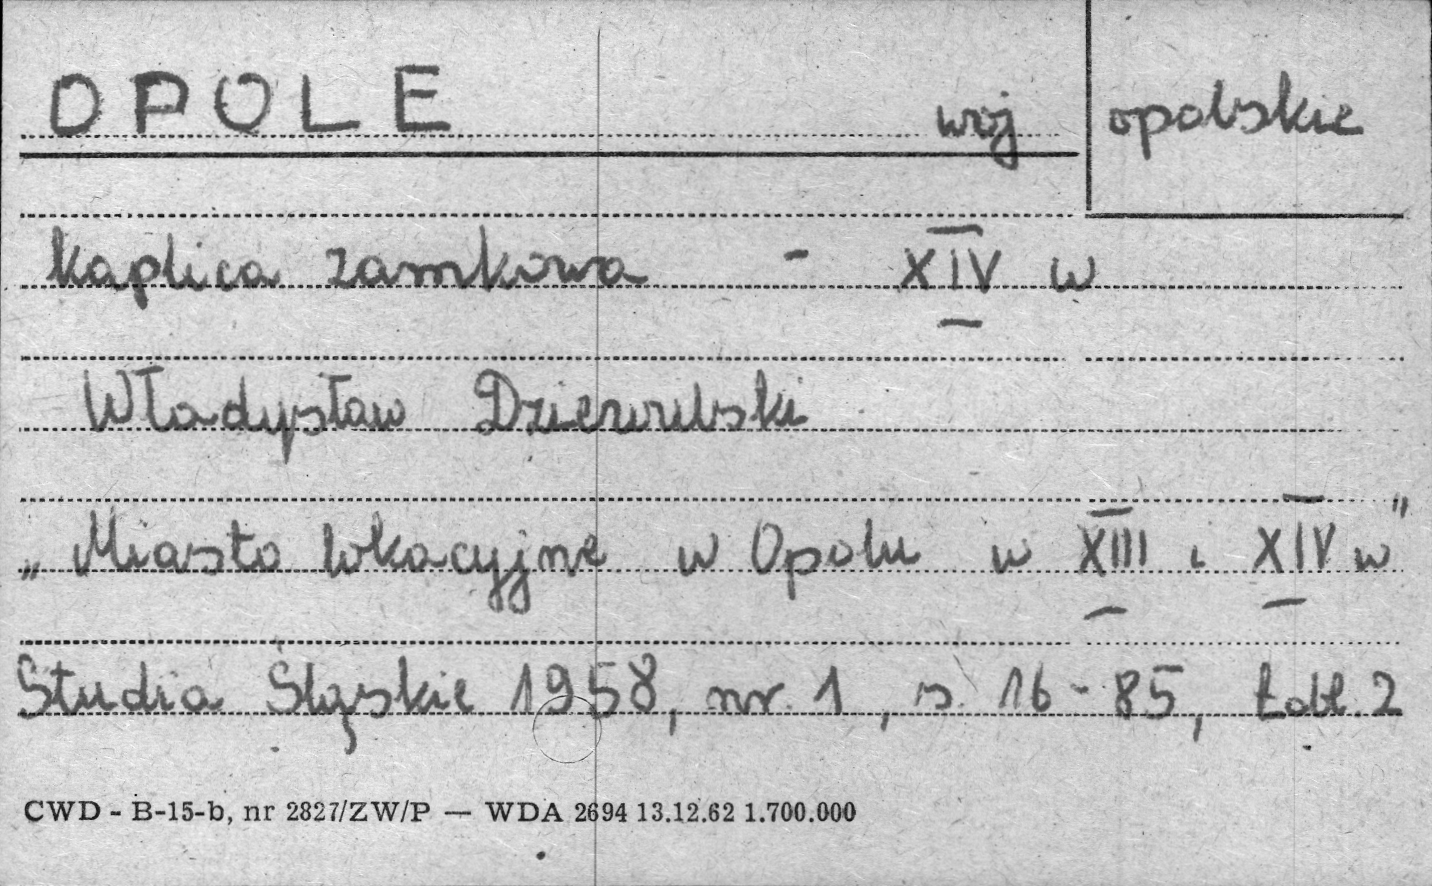 OPOLE woj opolskie
Kaplica zamkowa - XIV w
Władysław Dziewulski
„Miasto lokacyjne w Opolu w XIII i XIV w"
Studia Śląskie 1958, nr. 1, s. 16-85, tabl. 2
CWD - B-15-b, nr 2827/ZW/P — WDA 2694 13.12.62 1.700.000